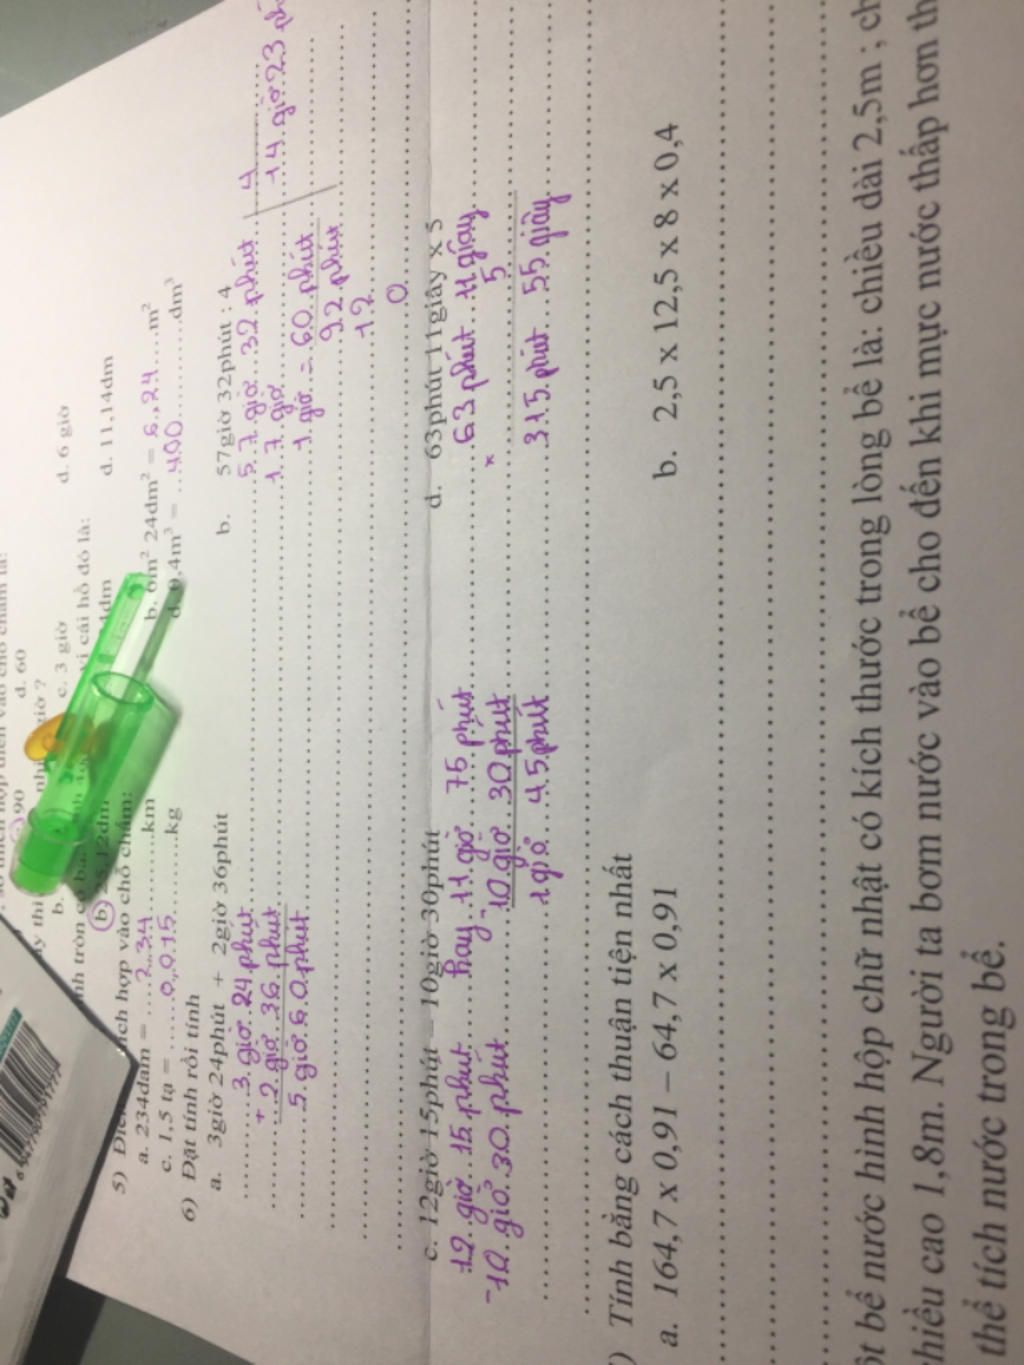 d. 60
90
c. 3 giờ
d. 6 giờ
b.
cái hồ đó là:
d. 11,14dm
5) hợp vào chỗ chấm:
a. 234dam = ....2,34....km
b. 6m² 24dm² = 6,24....m²
c. 1,5 tạ = ......0,015......kg
d. 0,4m³ = ..400.........dm³
6) Đặt tính rồi tính
a. 3giờ 24phút + 2giờ 36phút
b. 57giờ 32phút : 4
3 giờ 24 phút
+ 2 giờ 36 phút
5 giờ 60 phút
57 giờ 32 phút 4
17 giờ 14 giờ 23
1 giờ = 60 phút
92 phút
12
0
c. 12giờ 15phút – 10giờ 30phút
d. 63phút 11giây x 5
12 giờ 15 phút hay 11 giờ 75 phút
- 10 giờ 30 phút - 10 giờ 30 phút
1 giờ 45 phút
63 phút 11 giây
x 5
315 phút 55 giây
) Tính bằng cách thuận tiện nhất
a. 164,7 x 0,91 – 64,7 x 0,91
b. 2,5 x 12,5 x 8 x 0,4
bể nước hình hộp chữ nhật có kích thước trong lòng bể là: chiều dài 2,5m ;
cao 1,8m. Người ta bơm nước vào bể cho đến khi mực nước thấp hơn
thể tích nước trong bể.